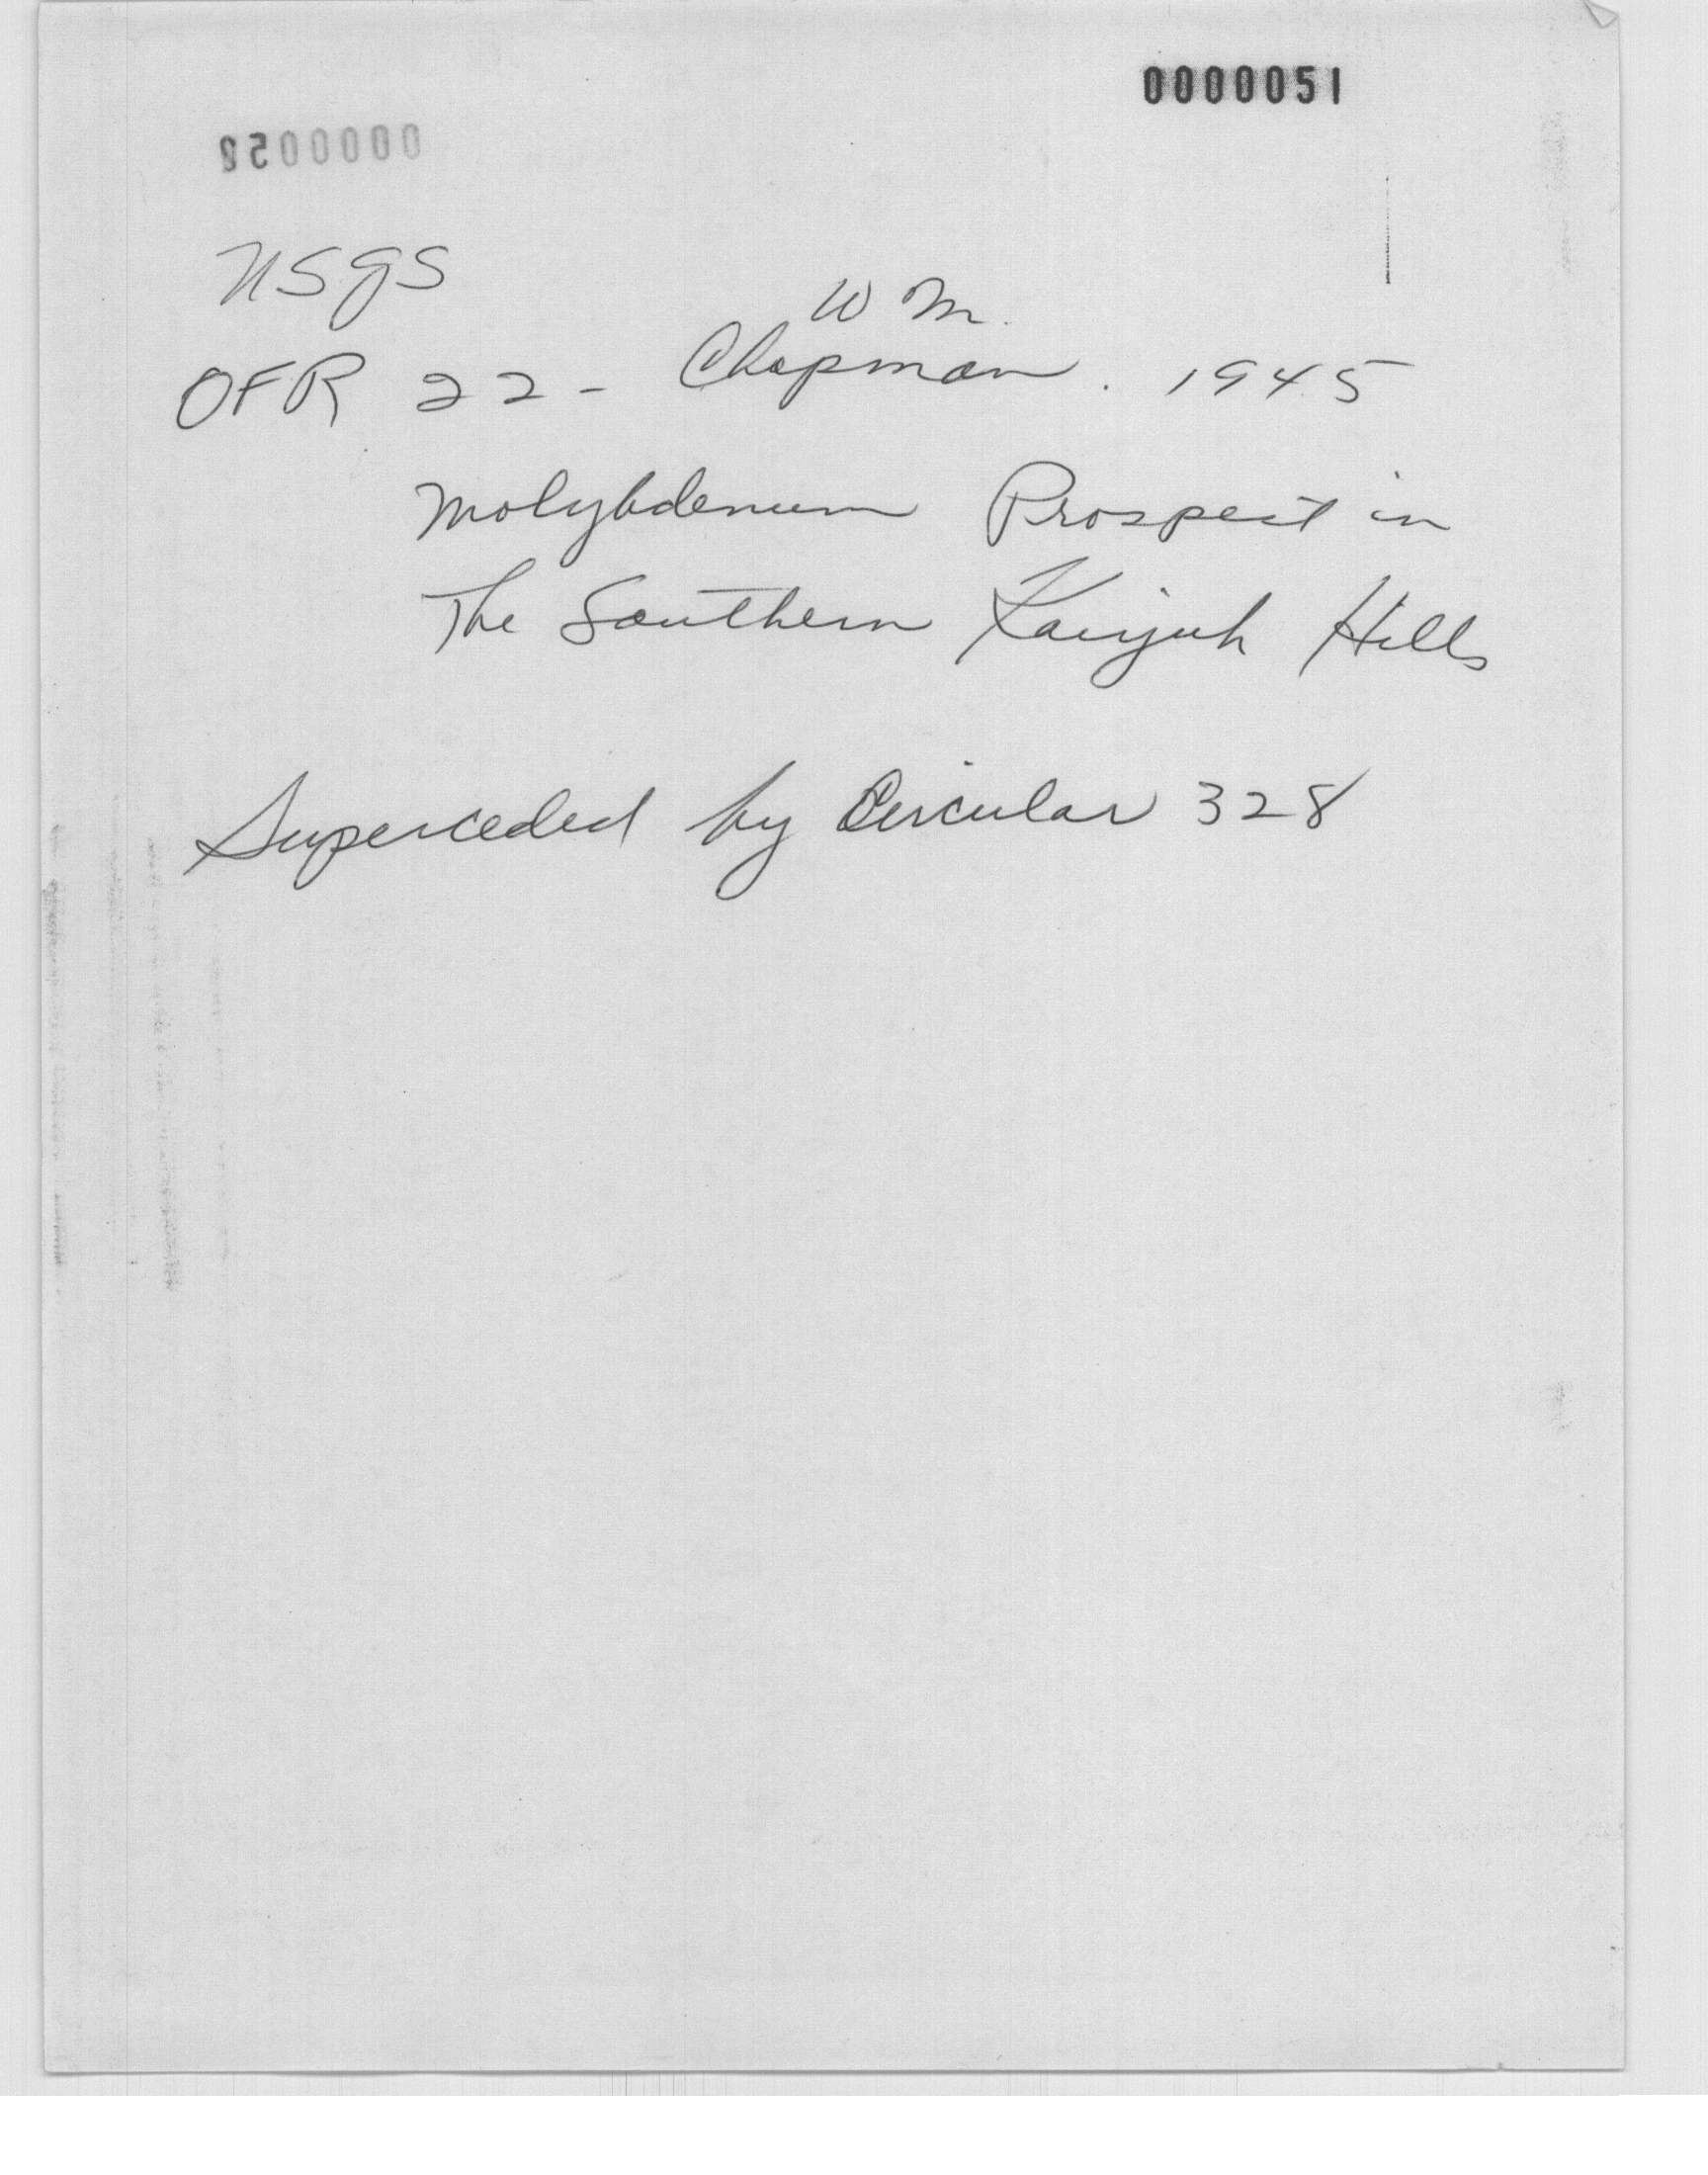 0000051
0000052
USGS
W M.
OFR 22 - Chapman. 1945
Molybdenum Prospect in
The Southern Kaiyuh Hills
Superceded by Circular 328